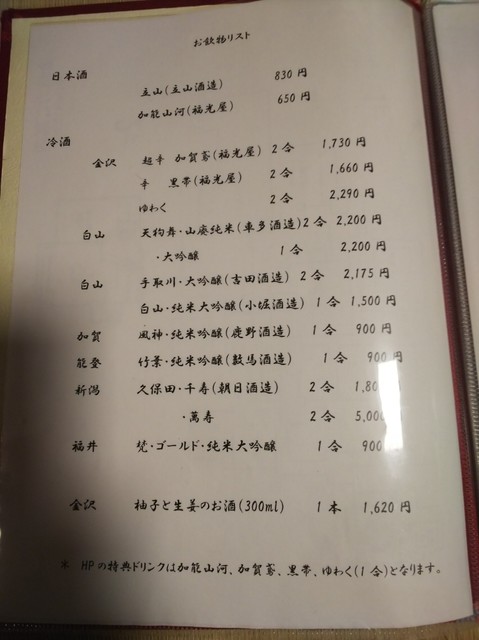 お飲物リスト
日本酒
立山(立山酒造) 830 円
加能山河(福光屋) 650 円
冷酒
金沢 超辛 加賀鳶(福光屋) 2 合 1,730 円
辛 黒帯(福光屋) 2 合 1,660 円
ゆわく 2 合 2,290 円
白山 天狗舞・山廃純米(車多酒造) 2 合 2,200 円
・大吟醸 1 合 2,200 円
白山 手取川・大吟醸(吉田酒造) 2 合 2,175 円
白山・純米大吟醸(小堀酒造) 1 合 1,500 円
加賀 風神・純米吟醸(鹿野酒造) 1 合 900 円
能登 竹葉・純米吟醸(数馬酒造) 1 合 900 円
新潟 久保田・千寿(朝日酒造) 2 合 1,80
・萬寿 2 合 5,000
福井 梵・ゴールド・純米大吟醸 1 合 900 円
金沢 柚子と生姜のお酒(300ml) 1 本 1,620 円
* HPの特典ドリンクは加能山河、加賀鳶、黒帯、ゆわく(1 合)となります。